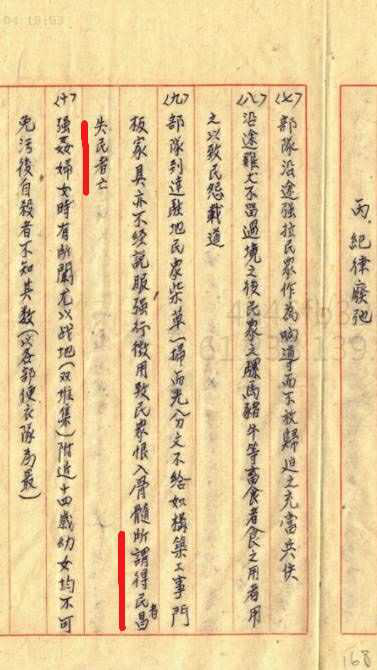 丙、紀律廢弛
(七)部隊沿途强拉民衆作為嚮導而不放歸迫之充當兵伕
(八)沿途雞犬不留過境之後民家之騾馬豬牛等畜食者食之用者用
之以致民怨載道
(九)部隊到達駐地民家柴草一掃而光分文不給如構築工事門
板家具亦不經説服强行徵用致民衆恨入骨髓所謂得民者昌
失民者亡
(十)强姦婦女時有所聞尤以战地(双堆集)附近十四歲幼女均不可
免污後自殺者不知其数(以各部便衣隊為最)
168